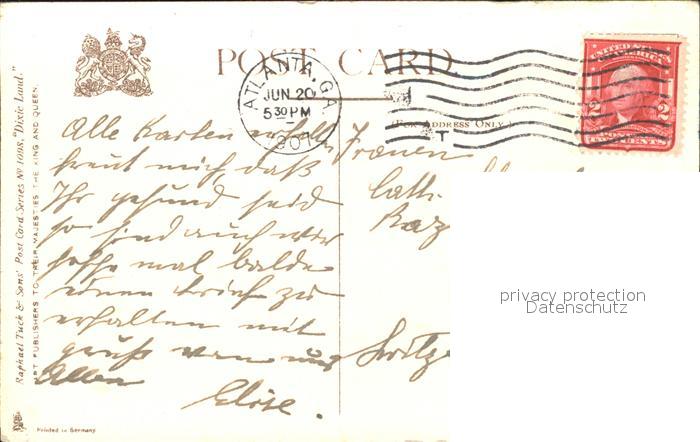 POST CARD.
ATLANTA, GA.
JUN 20
5 30 PM
1907
T
(For Address Only.)
UNITED STATES OF AMERICA
2 2
TWO CENTS
Raphael Tuck & Sons' Post Card Series No 1098, "Dixie Land."
ART PUBLISHERS TO THEIR MAJESTIES THE KING AND QUEEN.
Alle Karten erhalten
freut mich, daß
Ihr gesund seid
so sind auch wir
hoffe mal balde
einen Brief zu
erhalten mit
gruß von uns
Allen
Elise.
Frauen
Cath.
Raz
Switze
privacy protection
Datenschutz
Printed in Germany